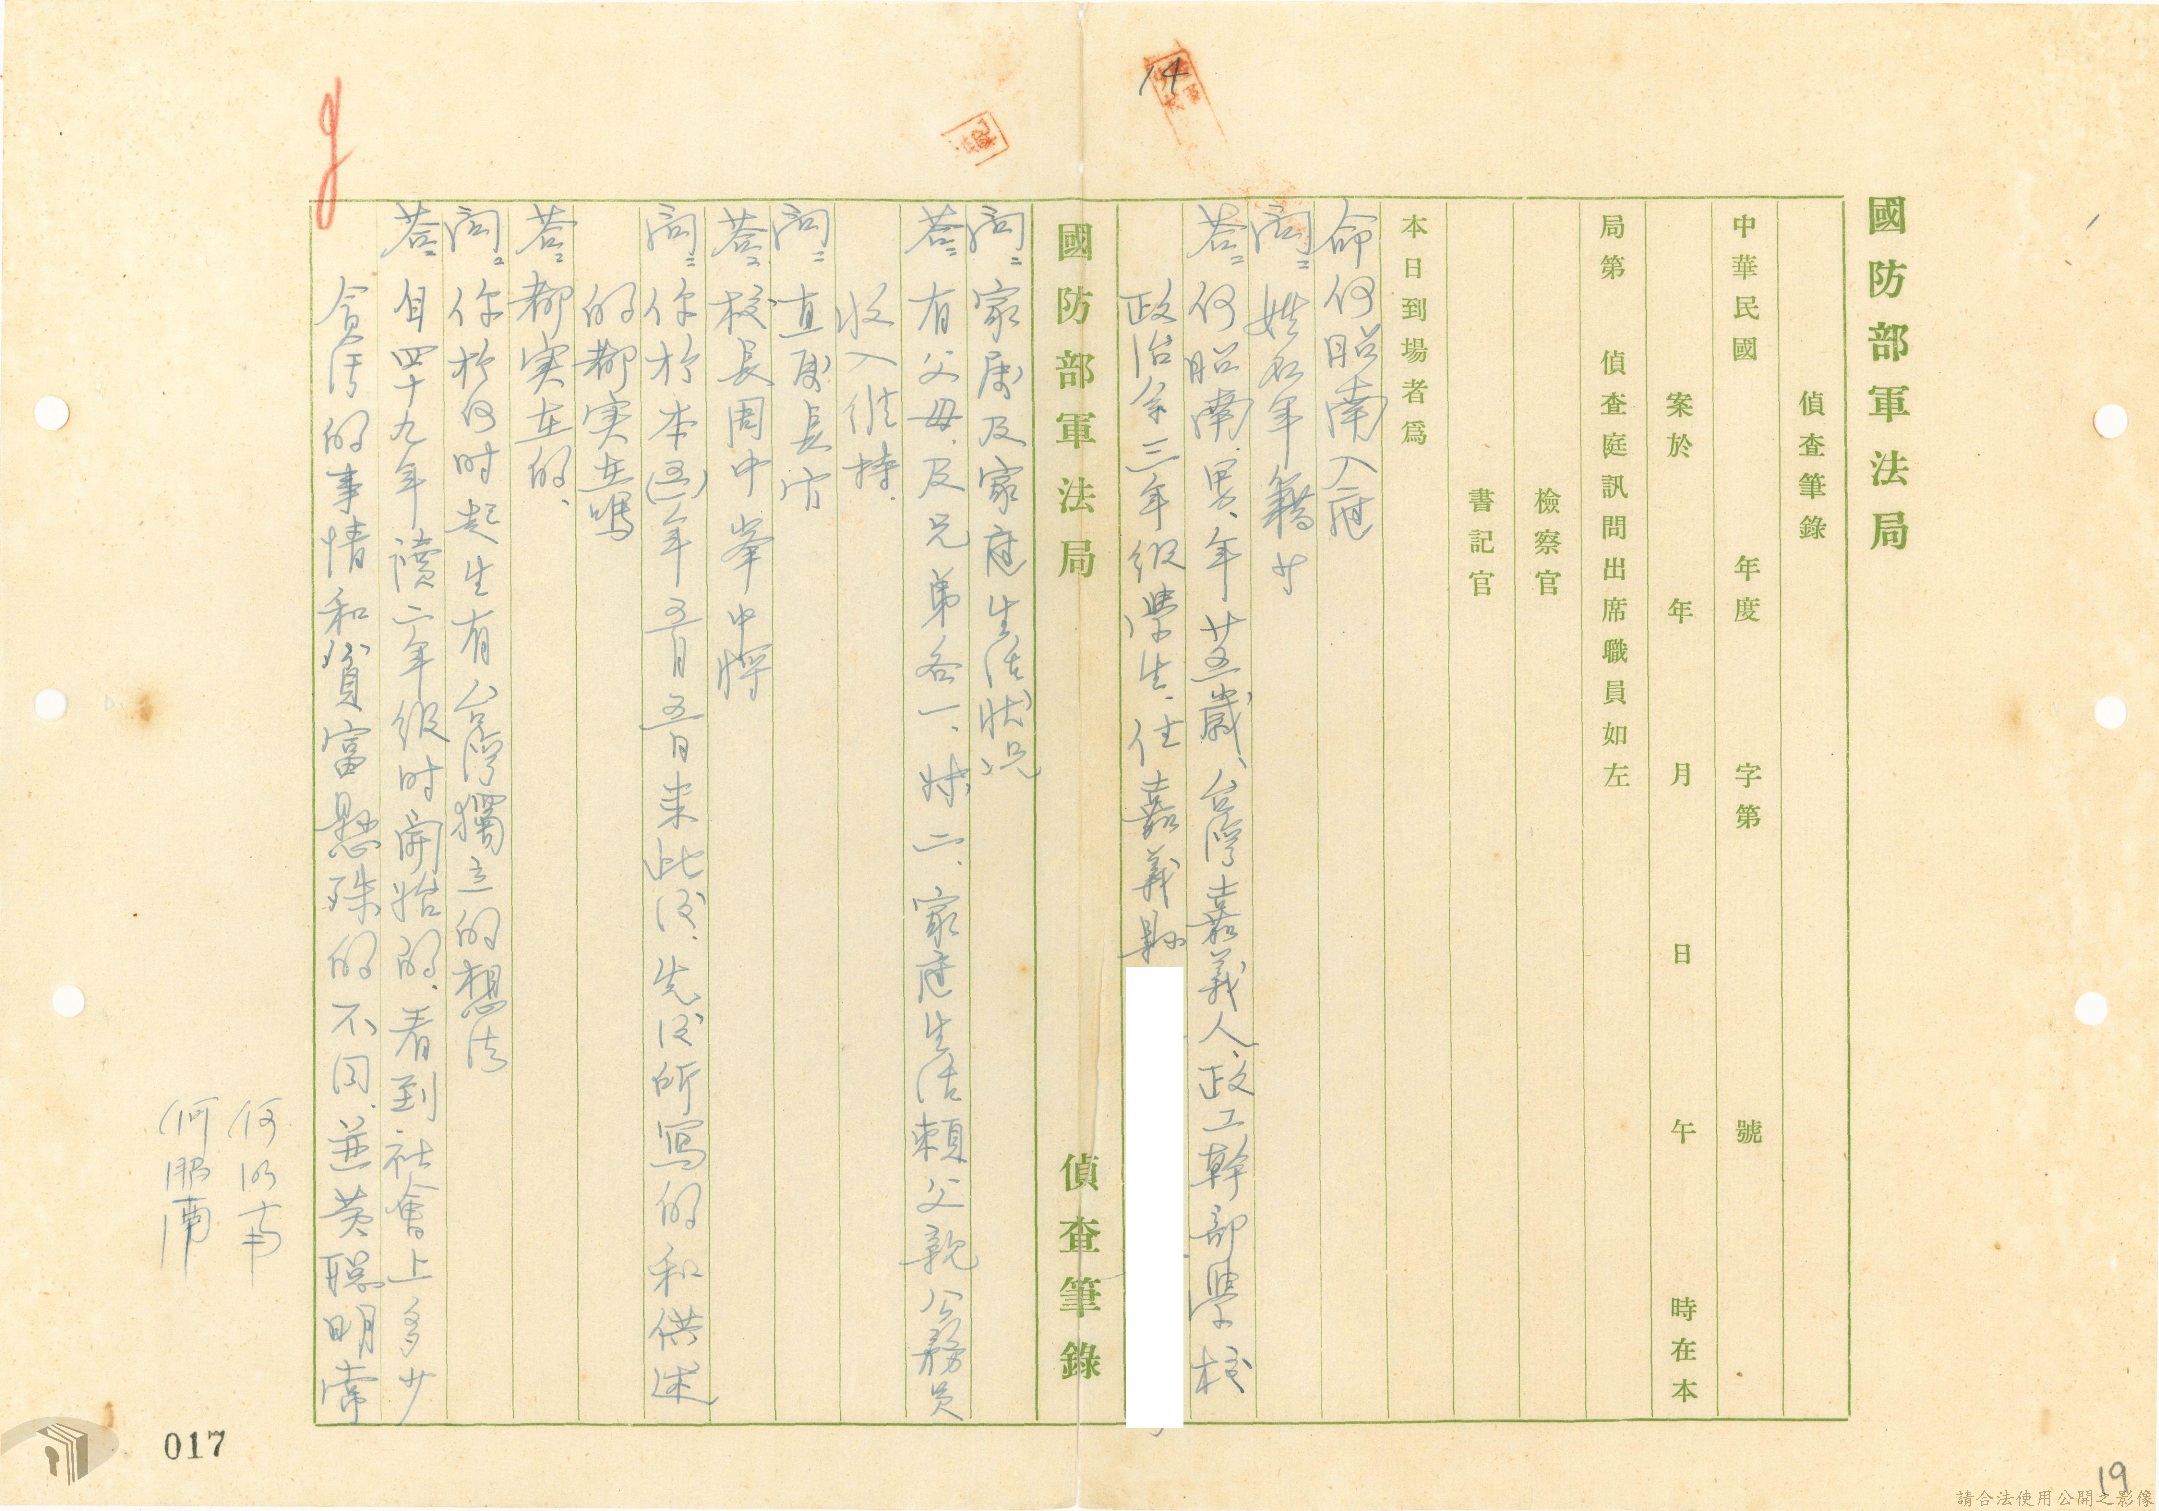 國防部軍法局
偵查筆錄
中華民國 年度 字第 號
案於 年 月 日 午 時在本
局第 偵查庭訊問出席職員如左
檢察官
書記官
本日到場者為
命何昭南入庭
問：姓名年籍等
答：何昭南、男、年廿五歲、台灣嘉義人政工幹部學校
政治系三年級學生、住嘉義縣
國防部軍法局 偵查筆錄
問：家屬及家庭生活狀況
答：有父母、及兄弟各一、妹二、家庭生活賴父親公務員
收入維持、
問：直屬長官
答：校長周中峯中將
問：你於本(五一)年五月五日來此後、先後所寫的和供述
的都実在嗎
答：都実在的、
問：你於何时起生有台灣獨立的想法
答：自四十九年讀二年級时開始的、看到社會上多少
貪污的事情和貧富懸殊的不同、並黃聰明常
何昭南
何昭南
14
017
19
請合法使用公開之影像